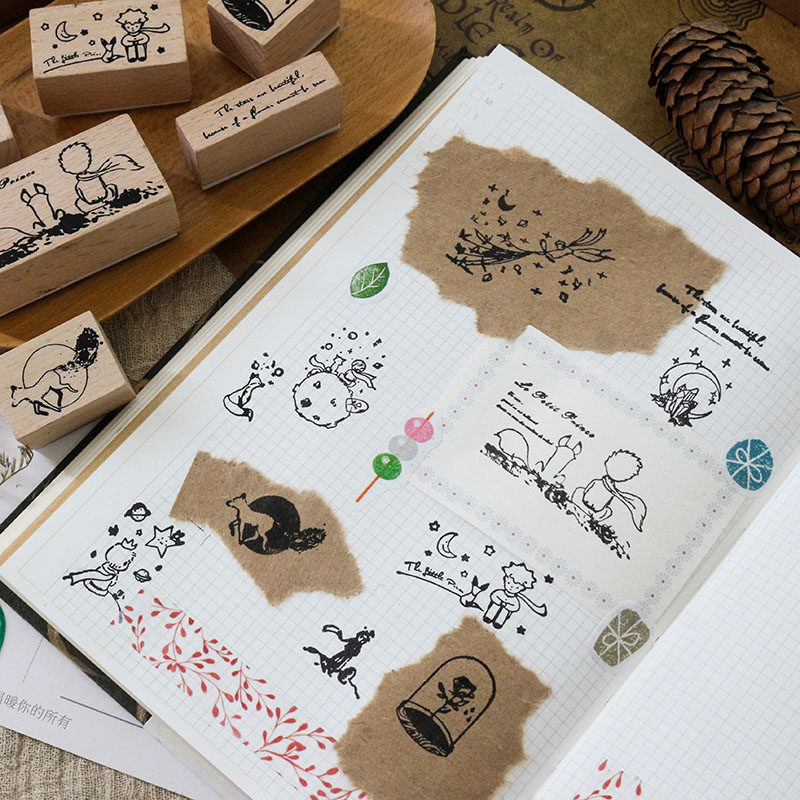 The little Prin..
The stars are beautiful,
because of a flower cannot be seen
Prince
Realm Of
S
M
T
W
The stars are beautiful,
because of a flower cannot be seen
Le Petit Prince
The little Prin..
温暖你的所有